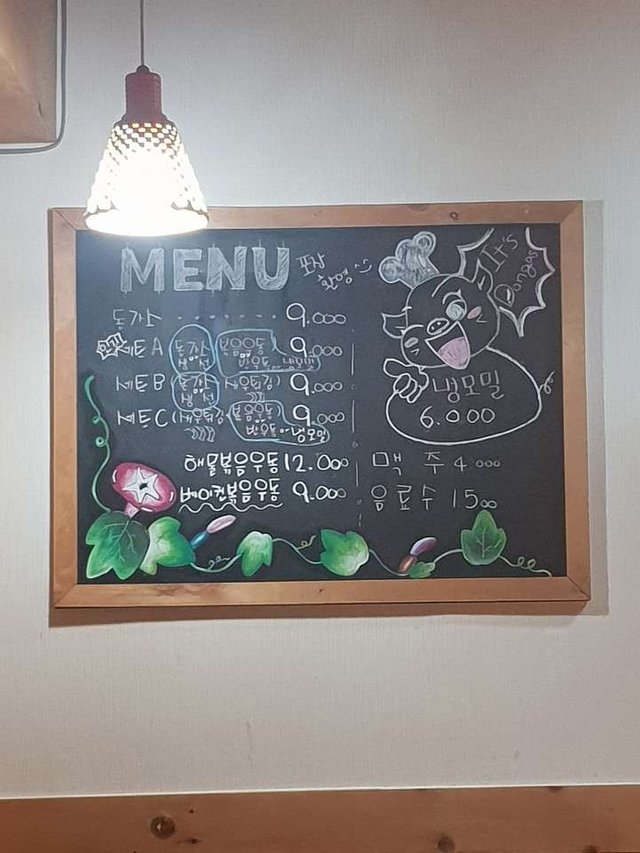 MENU 포장 환영
It's Dongas
돈까스 ········ 9.000
인기 세트 A 돈까스 생선 볶음우동 반우동 냉모밀 9.000
세트 B 돈까스 생선 (새우튀김) 9.000
세트 C (새우튀김) 볶음우동 반우동 냉모밀 9.000
해물볶음우동 12.000
베이컨볶음우동 9.000
냉모밀
6.000
맥 주 4000
음료수 1500